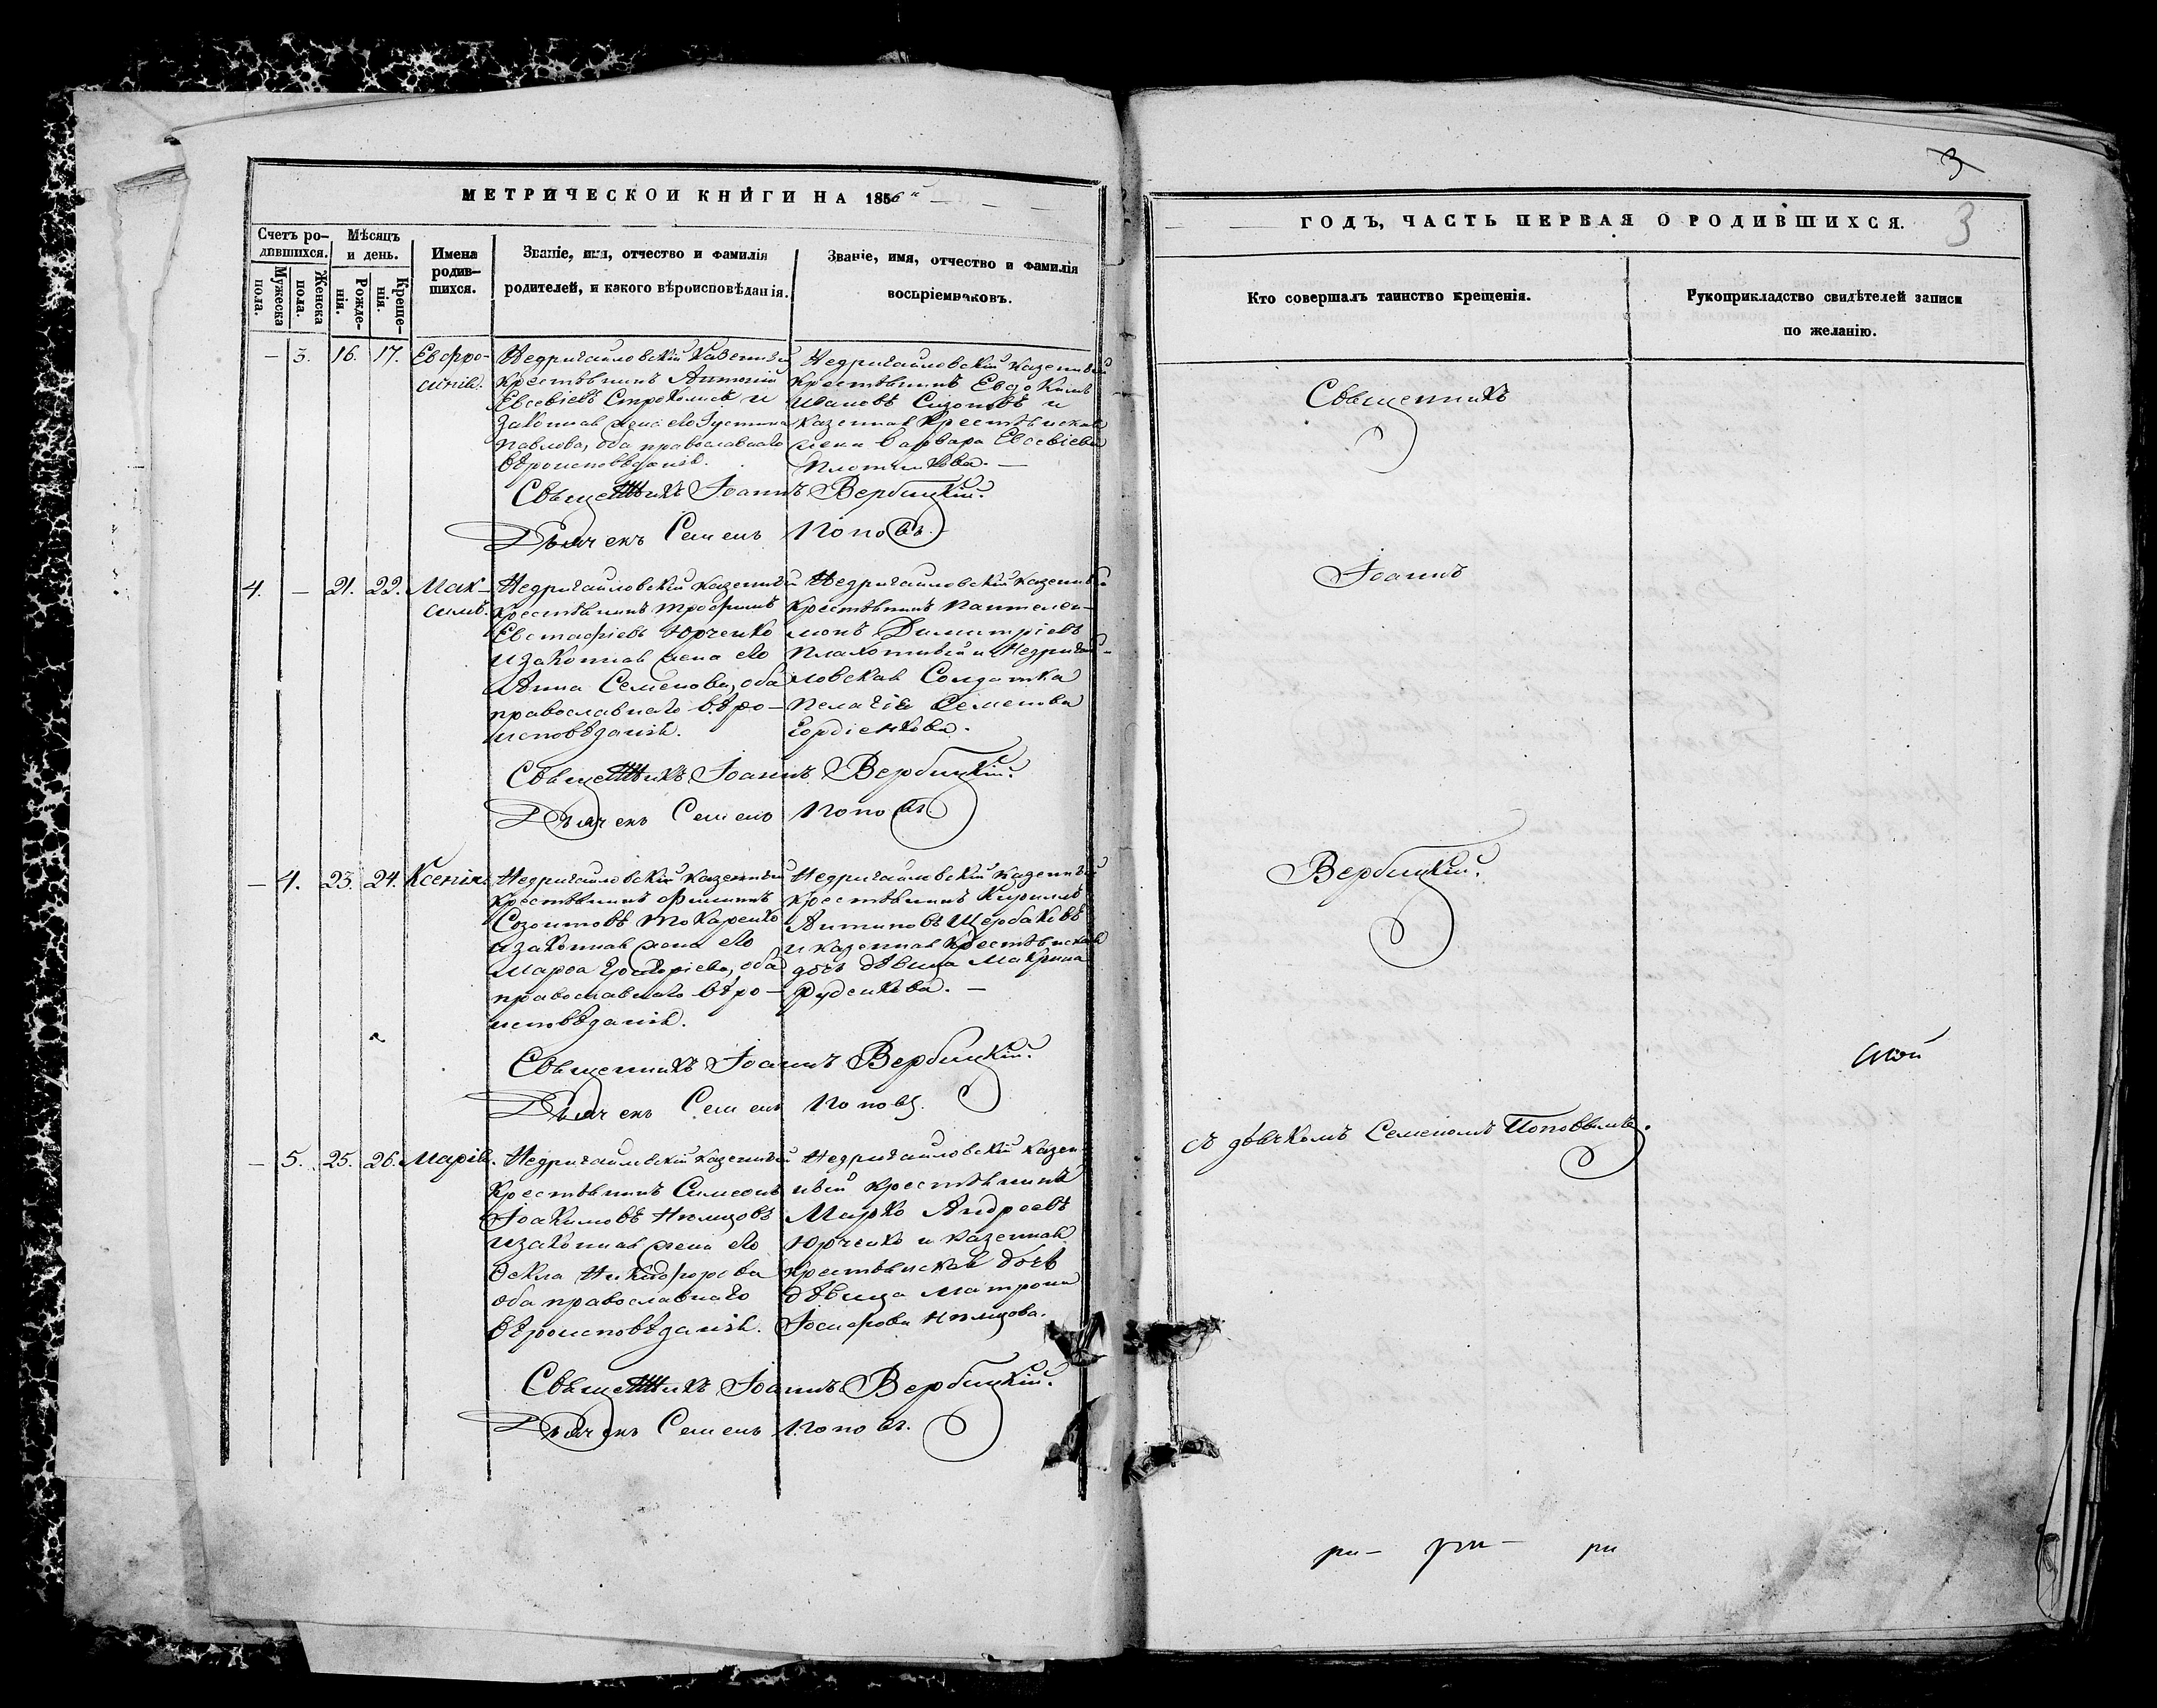 МЕТРИЧЕСКОЙ КНИГИ НА 1856й
Счетъ родившихся.
Мужеска пола.
Женска пола.
Мѣсяцъ и день.
Рожденія.
Крещенія.
Имена родившихся.
Званіе, имя, отчество и фамилія
родителей, и какого вѣроисповѣданія.
Званіе, имя, отчество и фамилія
воспріемниковъ.
— 3. 16. 17.
Евфро-
синія.
Недригайловскій казенный
крестьянинъ Антоній
Евсевіевъ Строколисъ и
законная жена его Іустина
Павлова, оба православнаго
вѣроисповѣданія.
Недригайловскій казенный
крестьянинъ Евдокимъ
Ивановъ и
казенная крестьянская
жена Варвара Евсевіева
Плотникова. —
Священникъ Іоаннъ Вербицкій.
Дьячекъ Семенъ Поповъ.
4. — 21. 22.
Мак-
симъ.
Недригайловскій казенный
крестьянинъ Трофимъ
Евстафіевъ Юрченко
и законная жена его
Анна Семенова, оба
православнаго вѣро-
исповѣданія.
Недригайловскій казенный
крестьянинъ Пантелеи-
монъ Димитріевъ
Плахотный и Недригай-
ловская Солдатка
Пелагія Семенова
Гордіенкова.
Священникъ Іоаннъ Вербицкій.
Дьячекъ Семенъ Поповъ
— 4. 23. 24. Ксенія.
Недригайловскій казенный
крестьянинъ Филиппъ
Созонтовъ Токаренко
и законная жена его
Марѳа Григоріева, оба
православнаго вѣро-
исповѣданія.
Недригайловскій казенный
крестьянинъ Кириллъ
Антиповъ Щербаковъ
и казенная крестьянская
дочь дѣвица Макрина
Руденкова. —
Священникъ Іоаннъ Вербицкій.
Дьячекъ Семенъ Поповъ.
— 5. 25. 26. Марія.
Недригайловскій казенный
крестьянинъ Симеонъ
Іоакимовъ Нѣмцовъ
и законная жена его
Ѳекла Никифорова
оба православнаго
вѣроисповѣданія.
Недригайловскій казен-
ный крестьянинъ
Марко Андреевъ
Юрченко и казенная
крестьянская дочь
дѣвица Матрона
Іосифова Нѣмцова.
Священникъ Іоаннъ Вербицкій.
Дьячекъ Семенъ Поповъ.
3
3
ГОДЪ, ЧАСТЬ ПЕРВАЯ О РОДИВШИХСЯ.
Кто совершалъ таинство крещенія.
Рукоприкладство свидѣтелей записи
по желанію.
Священникъ
Іоаннъ
Вербицкій.
съ дьячкомъ Семеномъ Поповымъ.
ри— ри— ри